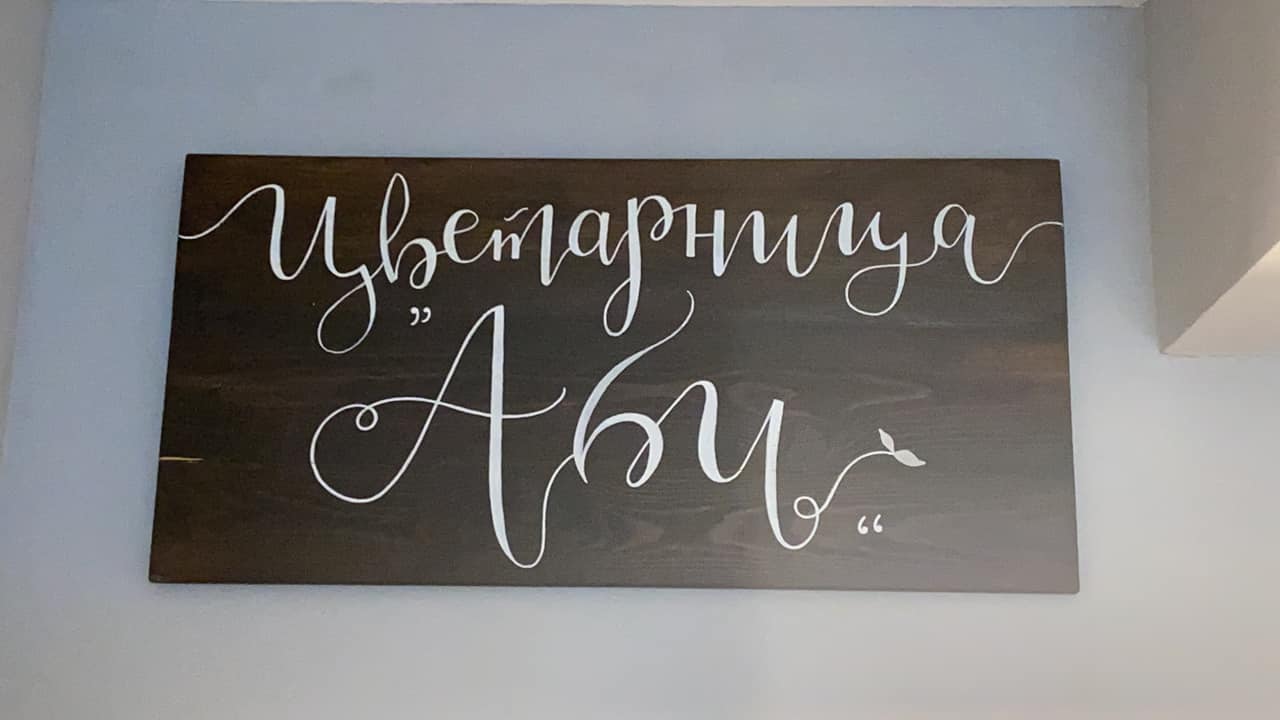 Цветарница
„Аби“